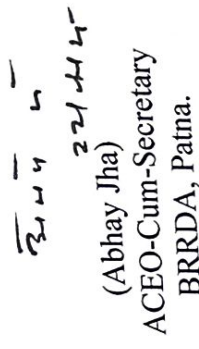 (Abhay Jha)
ACEO-Cum-Secretary
BRRDA, Patna.